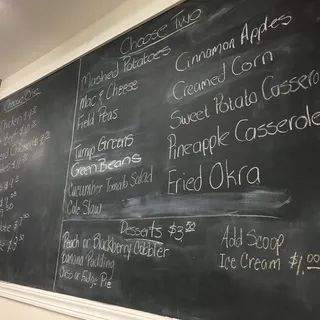 Choose One
Chicken
Choose Two
Mashed Potatoes
Mac & Cheese
Field Peas
Turnip Greens
Green Beans
Cucumber Tomato Salad
Cole Slaw
Cinnamon Apples
Creamed Corn
Sweet Potato Cassero
Pineapple Casserole
Fried Okra
Desserts $3.50
Peach or Blackberry Cobbler
Banana Pudding
Oreo or Fudge Pie
Add Scoop
Ice Cream $1.00